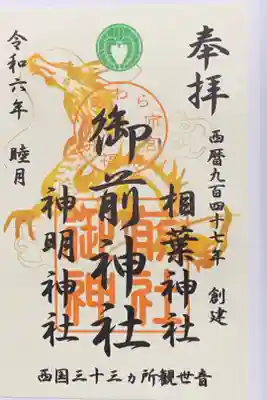 奉拝
西暦九百四十七年 創建
相葉神社
御前神社
神明神社
令和六年 睦月
西国三十三ヵ所観世音